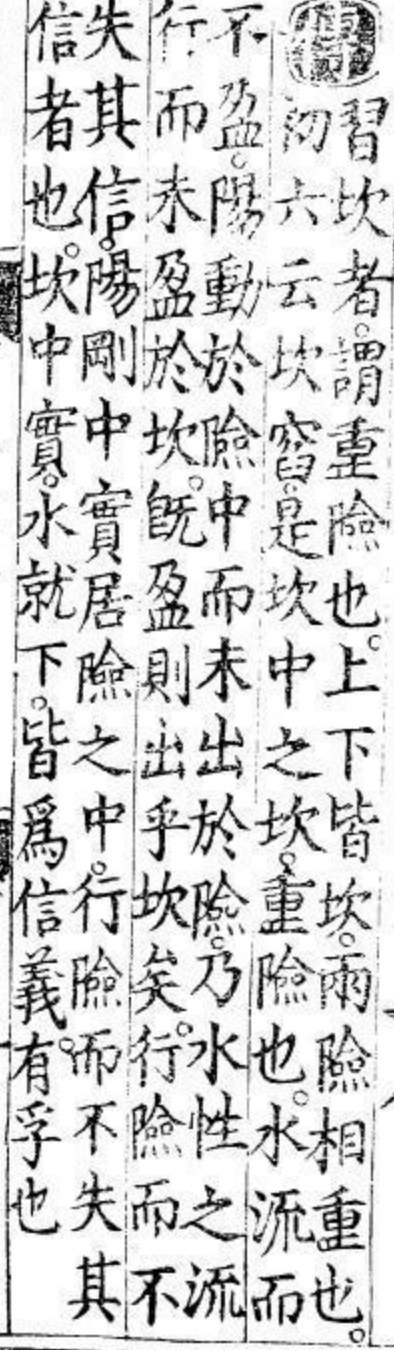 傳
習坎者。謂重險也。上下皆坎。兩險相重也。
初六云坎窞。是坎中之坎。重險也。水流而
不盈。陽動於險中而未出於險。乃水性之流
行而未盈於坎。既盈則出乎坎矣。行險而不
失其信。陽剛中實居險之中。行險而不失其
信者也。坎中實。水就下。皆爲信義。有孚也